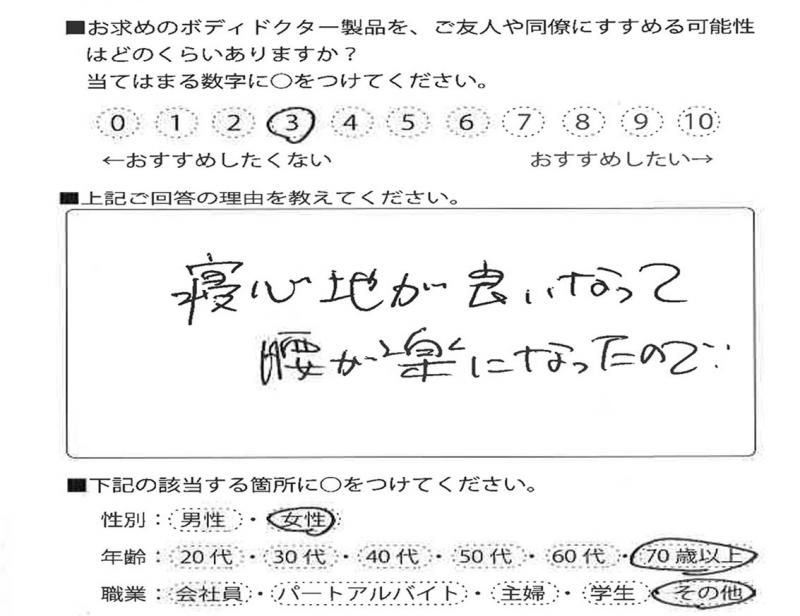 ■お求めのボディドクター製品を、ご友人や同僚にすすめる可能性
はどのくらいありますか？
当てはまる数字に○をつけてください。
0 1 2 3 4 5 6 7 8 9 10
←おすすめしたくない おすすめしたい→
■上記ご回答の理由を教えてください。
寝心地が良いなって
腰が楽になったので…
■下記の該当する箇所に○をつけてください。
性別：男性・女性
年齢：20代・30代・40代・50代・60代・70歳以上
職業：会社員・パートアルバイト・主婦・学生・その他